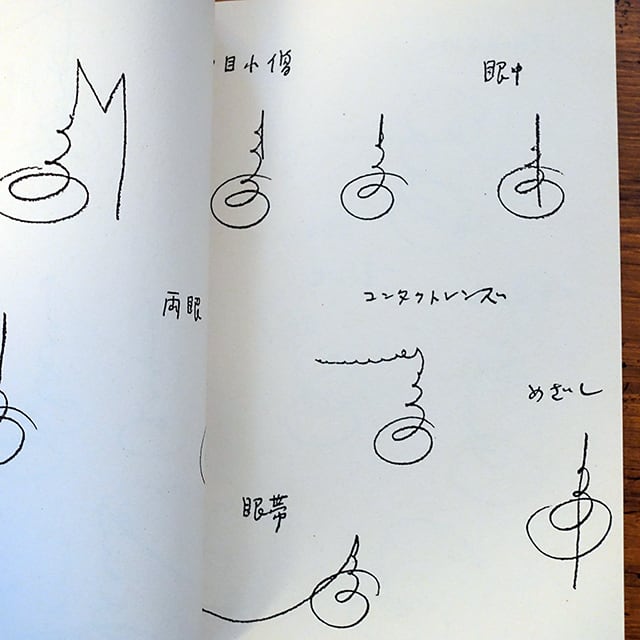 目小僧
眼中
両眼
コンタクトレンズ
めざし
眼帯